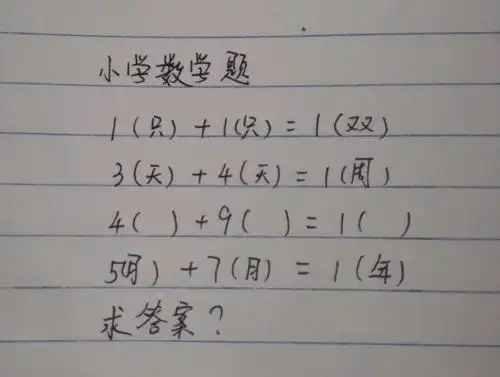 小学数学题
1(只)+1(只)=1(双)
3(天)+4(天)=1(周)
4( )+9( )=1( )
5(月)+7(月)=1(年)
求答案?